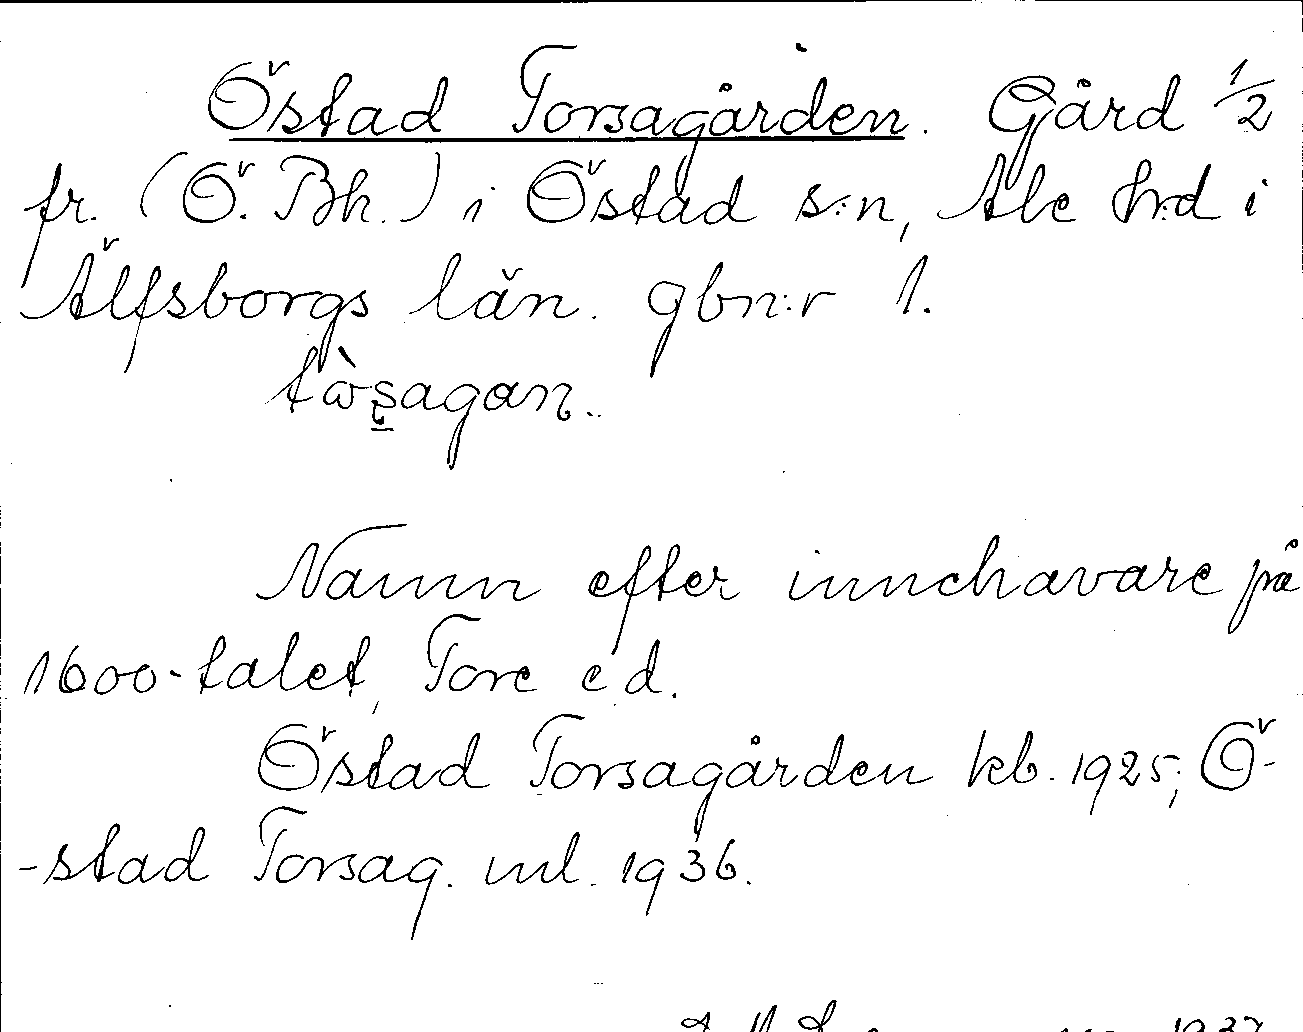 Östad Torsagården. Gård 1/2
fr. (Ö. Bh.) i Östad s:n, Ale h:d i
Älfsborgs län. gbn:r 1.
tòs̠agan.
Namn efter innehavare på
1600-talet, Tore e d.
Östad Torsagården kb. 1925; Ö-
-stad Torsag. ml. 1936.
1937